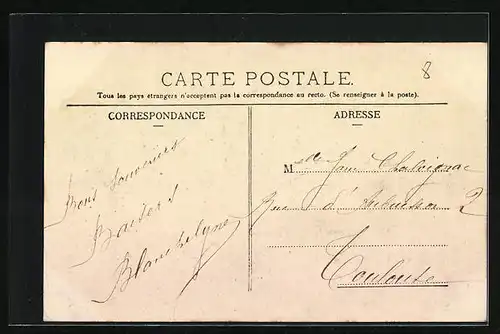 8
CARTE POSTALE.
Tous les pays étrangers n'acceptent pas la correspondance au recto. (Se renseigner à la poste).
CORRESPONDANCE
ADRESSE
Bons Souvenirs
Baisers
M
Rue d'Aubuisson 2
Toulouse